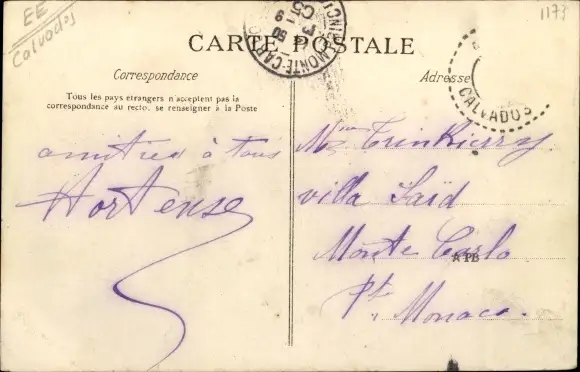 EE
Calvados
1173
CARTE POSTALE
MONTE-CARLO
CALVADOS
Correspondance
Tous les pays étrangers n'acceptent pas la
correspondance au recto, se renseigner à la Poste
amitiés à tous
Hortense
Adresse
Mme
villa Saïd
Monte Carlo
PB
Pté Monaco.